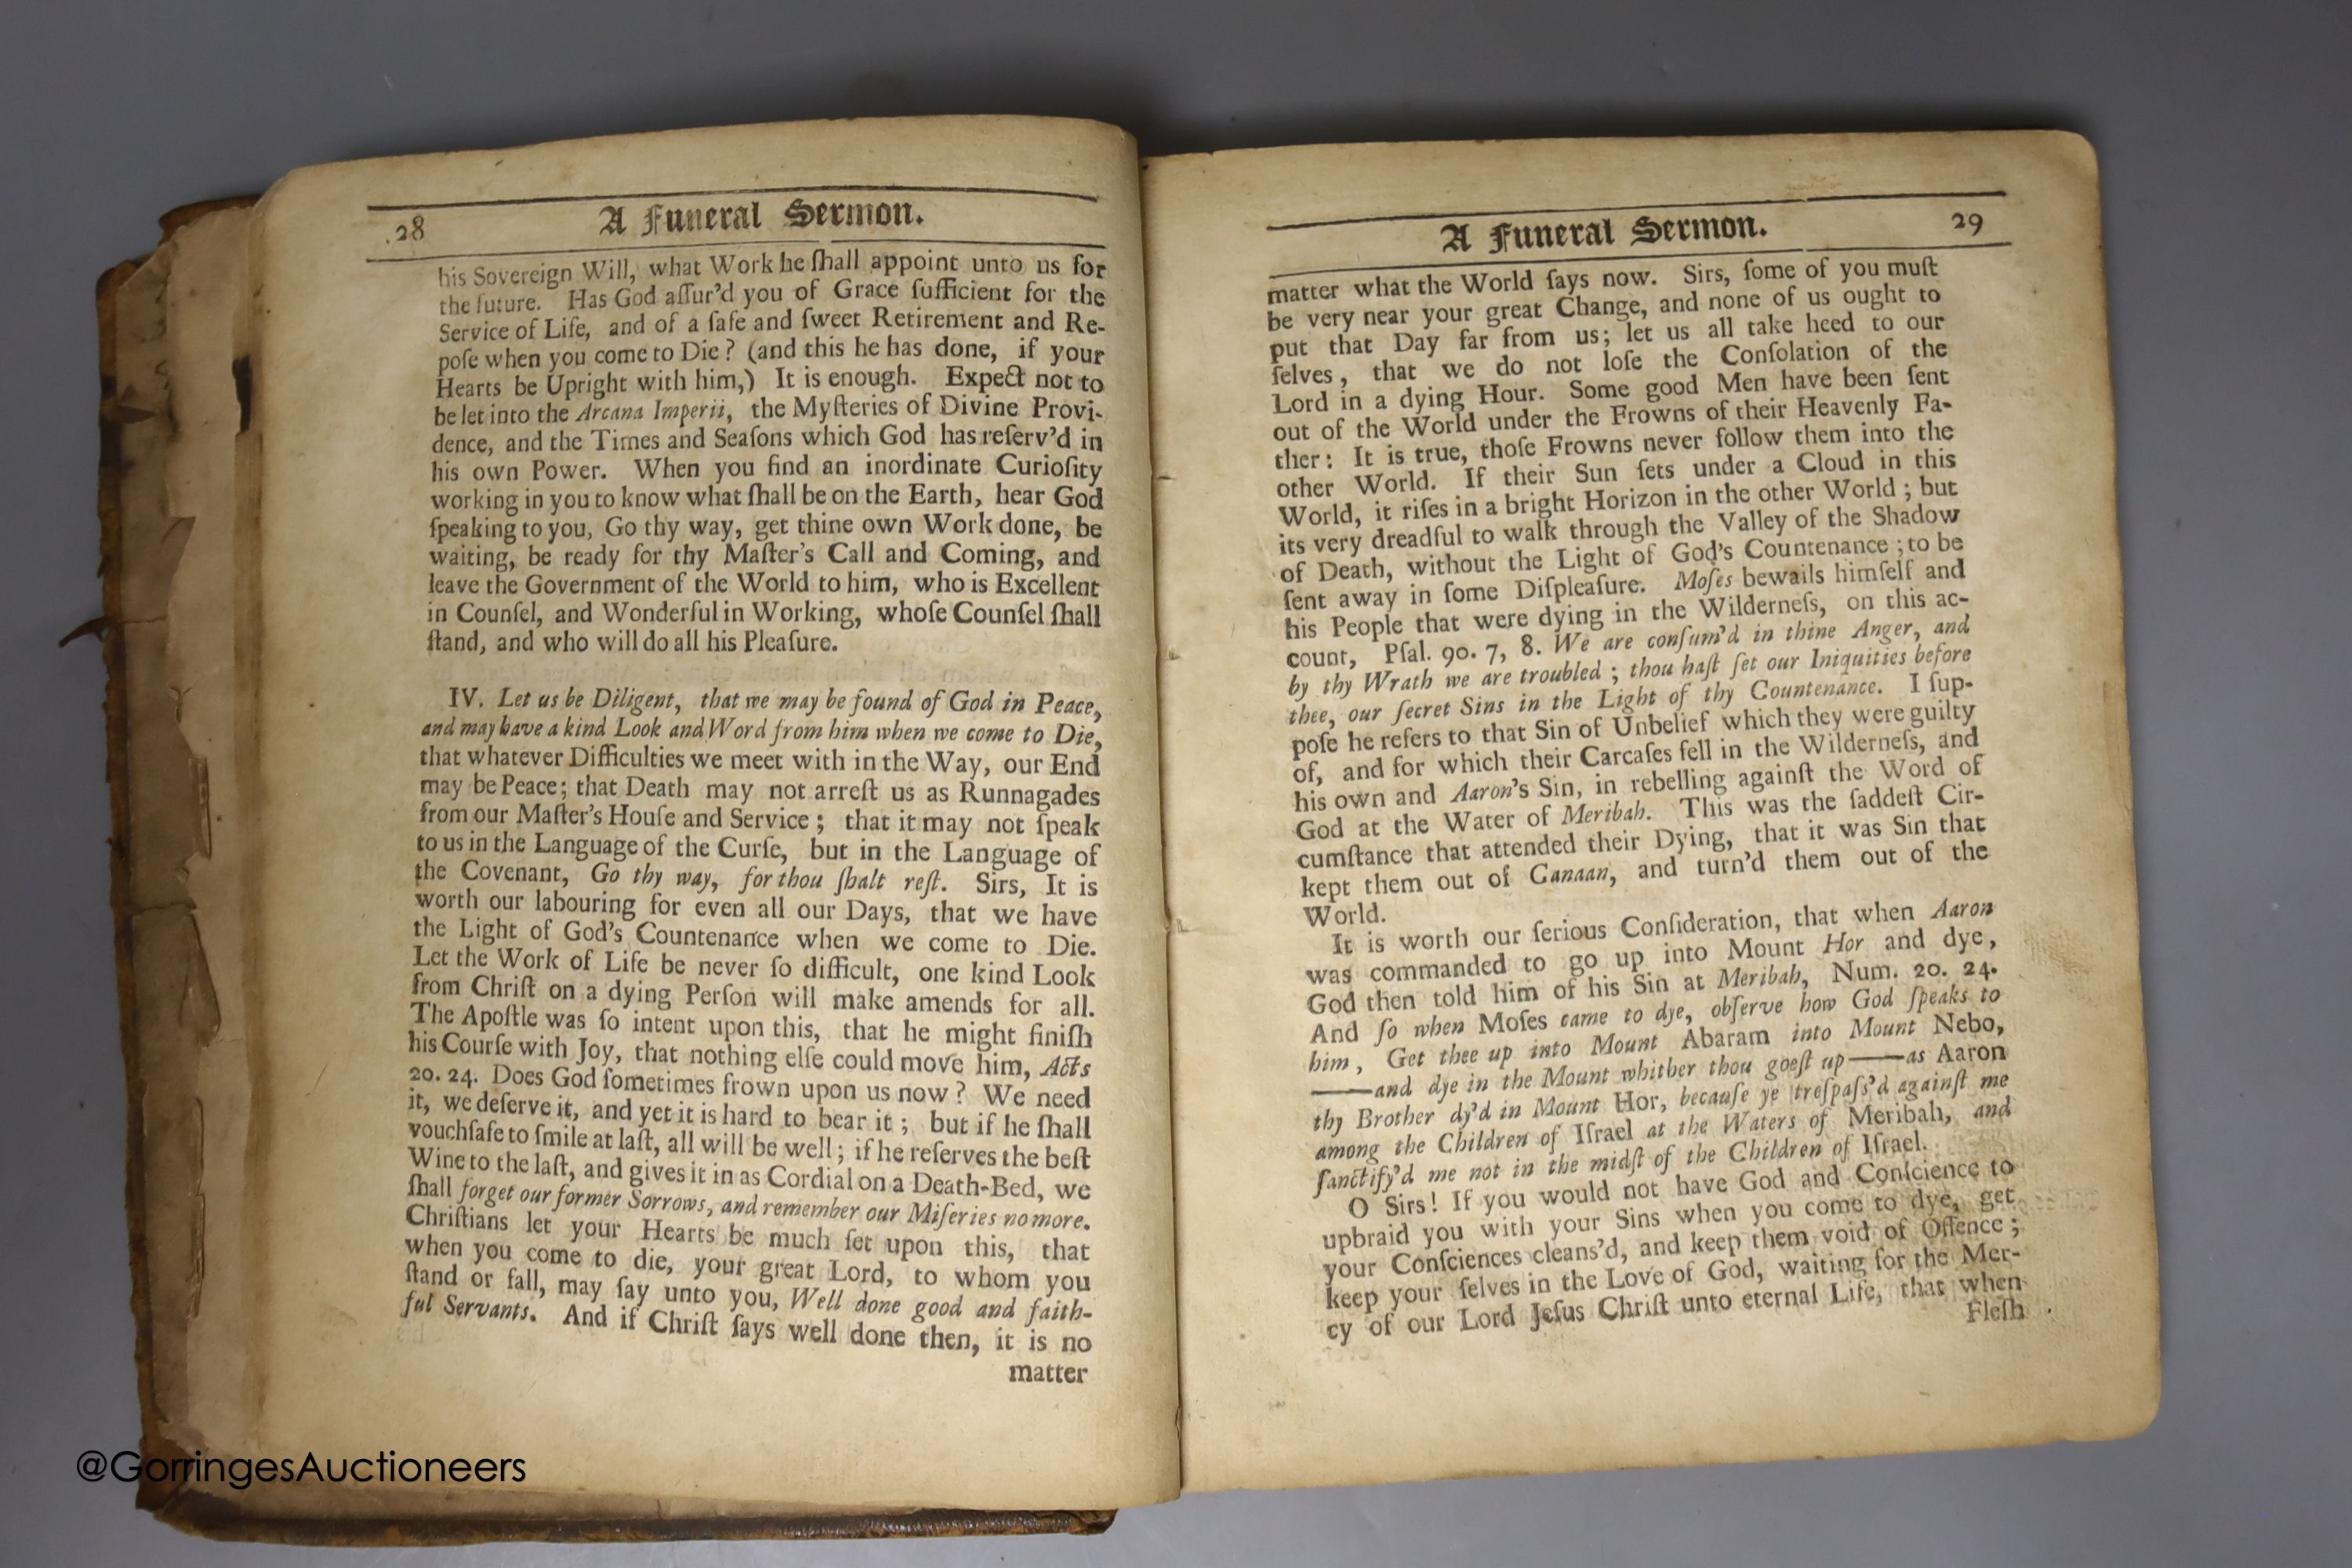 28 A Funeral Sermon.
his Sovereign Will, what Work he ſhall appoint unto us for
the future. Has God aſſur'd you of Grace ſufficient for the
Service of Life, and of a ſafe and ſweet Retirement and Re-
poſe when you come to Die? (and this he has done, if your
Hearts be Upright with him,) It is enough. Expect not to
be let into the Arcana Imperii, the Myſteries of Divine Provi-
dence, and the Times and Seaſons which God has reſerv'd in
his own Power. When you find an inordinate Curioſity
working in you to know what ſhall be on the Earth, hear God
ſpeaking to you, Go thy way, get thine own Work done, be
waiting, be ready for thy Maſter's Call and Coming, and
leave the Government of the World to him, who is Excellent
in Counſel, and Wonderful in Working, whoſe Counſel ſhall
ſtand, and who will do all his Pleaſure.
IV. Let us be Diligent, that we may be found of God in Peace,
and may have a kind Look and Word from him when we come to Die,
that whatever Difficulties we meet with in the Way, our End
may be Peace; that Death may not arreſt us as Runnagades
from our Maſter's Houſe and Service; that it may not ſpeak
to us in the Language of the Curſe, but in the Language of
the Covenant, Go thy way, for thou ſhalt reſt. Sirs, It is
worth our labouring for even all our Days, that we have
the Light of God's Countenance when we come to Die.
Let the Work of Life be never ſo difficult, one kind Look
from Chriſt on a dying Perſon will make amends for all.
The Apoſtle was ſo intent upon this, that he might finiſh
his Courſe with Joy, that nothing elſe could move him, Acts
20. 24. Does God ſometimes frown upon us now? We need
it, we deſerve it, and yet it is hard to bear it; but if he ſhall
vouchſafe to ſmile at laſt, all will be well; if he reſerves the beſt
Wine to the laſt, and gives it in as Cordial on a Death-Bed, we
ſhall forget our former Sorrows, and remember our Miſeries no more.
Chriſtians let your Hearts be much ſet upon this, that
when you come to die, your great Lord, to whom you
ſtand or fall, may ſay unto you, Well done good and faith-
ful Servants. And if Chriſt ſays well done then, it is no
matter
A Funeral Sermon. 29
matter what the World ſays now. Sirs, ſome of you muſt
be very near your great Change, and none of us ought to
put that Day far from us; let us all take heed to our
ſelves, that we do not loſe the Conſolation of the
Lord in a dying Hour. Some good Men have been ſent
out of the World under the Frowns of their Heavenly Fa-
ther: It is true, thoſe Frowns never follow them into the
other World. If their Sun ſets under a Cloud in this
World, it riſes in a bright Horizon in the other World; but
its very dreadful to walk through the Valley of the Shadow
of Death, without the Light of God's Countenance; to be
ſent away in ſome Diſpleaſure. Moſes bewails himſelf and
his People that were dying in the Wilderneſs, on this ac-
count, Pſal. 90. 7, 8. We are conſum'd in thine Anger, and
by thy Wrath we are troubled; thou haſt ſet our Iniquities before
thee, our ſecret Sins in the Light of thy Countenance. I ſup-
poſe he refers to that Sin of Unbelief which they were guilty
of, and for which their Carcaſes fell in the Wilderneſs, and
his own and Aaron's Sin, in rebelling againſt the Word of
God at the Water of Meribah. This was the ſaddeſt Cir-
cumſtance that attended their Dying, that it was Sin that
kept them out of Canaan, and turn'd them out of the
World.
It is worth our ſerious Conſideration, that when Aaron
was commanded to go up into Mount Hor and dye,
God then told him of his Sin at Meribah, Num. 20. 24.
And ſo when Moſes came to dye, obſerve how God ſpeaks to
him, Get thee up into Mount Abaram into Mount Nebo,
——and dye in the Mount whither thou goeſt up——as Aaron
thy Brother dy'd in Mount Hor, becauſe ye treſpaſs'd againſt me
among the Children of Iſrael at the Waters of Meribah, and
ſanctify'd me not in the midſt of the Children of Iſrael.
O Sirs! If you would not have God and Conſcience to
upbraid you with your Sins when you come to dye, get
your Conſciences cleans'd, and keep them void of Offence;
keep your ſelves in the Love of God, waiting for the Mer-
cy of our Lord Jeſus Chriſt unto eternal Life, that when
Fleſh
@GorringesAuctioneers